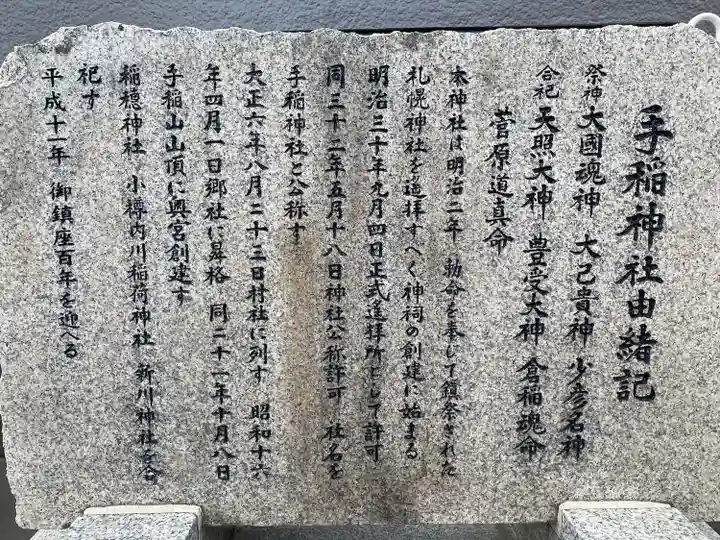 手稲神社由緒記
祭神 大國魂神 大己貴神 少彦名神
合祀 天照大神 豊受大神 倉稲魂命
菅原道真命
本神社は明治二年 勅命を奉じて鎮祭された
札幌神社を遥拝すべく神祠の創建に始まる
明治三十年九月四日正式遥拝所として許可
同三十二年五月十八日神社公称許可 社名を
手稲神社と公称す
大正六年八月二十三日村社に列す 昭和十六
年四月一日郷社に昇格 同二十一年十月八日
手稲山山頂に奥宮創建す
稲穂神社 小樽内川稲荷神社 新川神社を合
祀す
平成十一年 御鎮座百年を迎へる